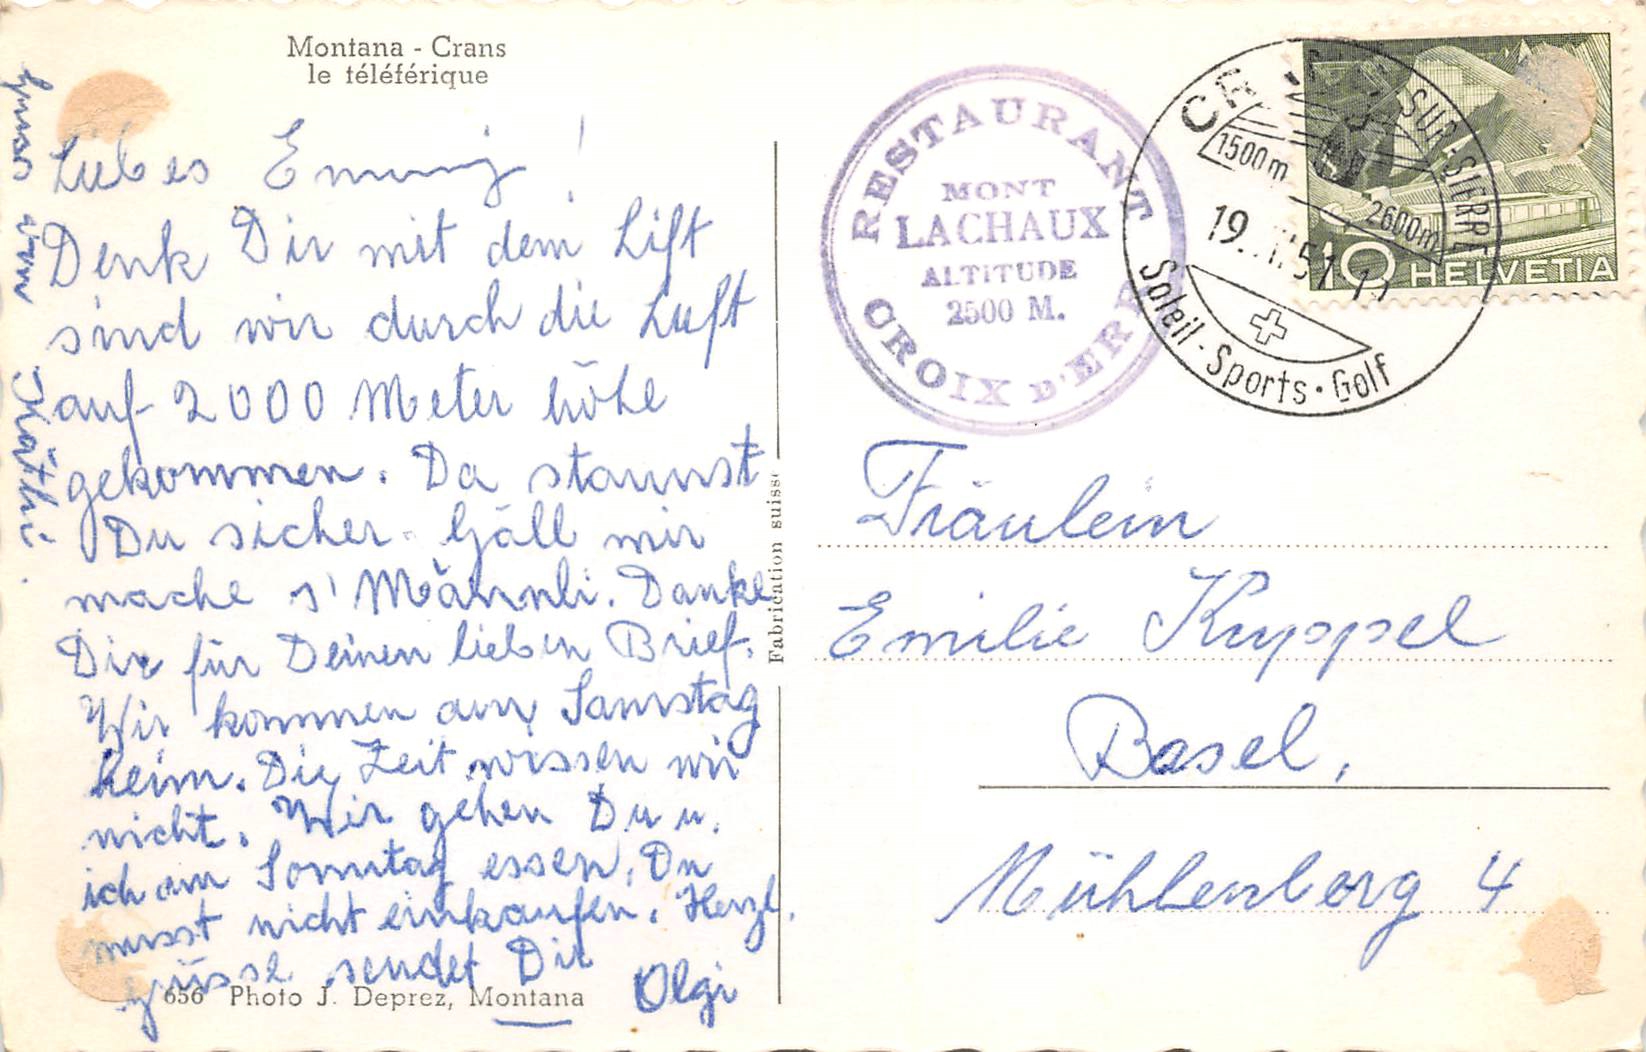 Montana - Crans
le téléférique
Liebes Emmy!
Denk Dir mit dem Lift
sind wir durch die Luft
auf 2000 Meter höhe
gekommen. Da staunst
Du sicher. Gäll mir
mache s' Männli. Danke
Dir für Deinen lieben Brief.
Wir kommen am Samstag
heim. Die Zeit wissen wir
nicht. Wir gehen Du u.
ich am Sonntag essen. Du
musst nicht einkaufen. Herzl.
grüsse sendet Dir
Olgi
Gruss von Käthi.
656 Photo J. Deprez, Montana
Fabrication suisse
RESTAURANT
MONT
LACHAUX
ALTITUDE
2500 M.
CROIX D'ER
CR SUR SIERRE
1500m
2600m
19.
Soleil - Sports · Golf
10 HELVETIA
Fräulein
Emilie Kuppel
Basel,
Mühlenberg 4